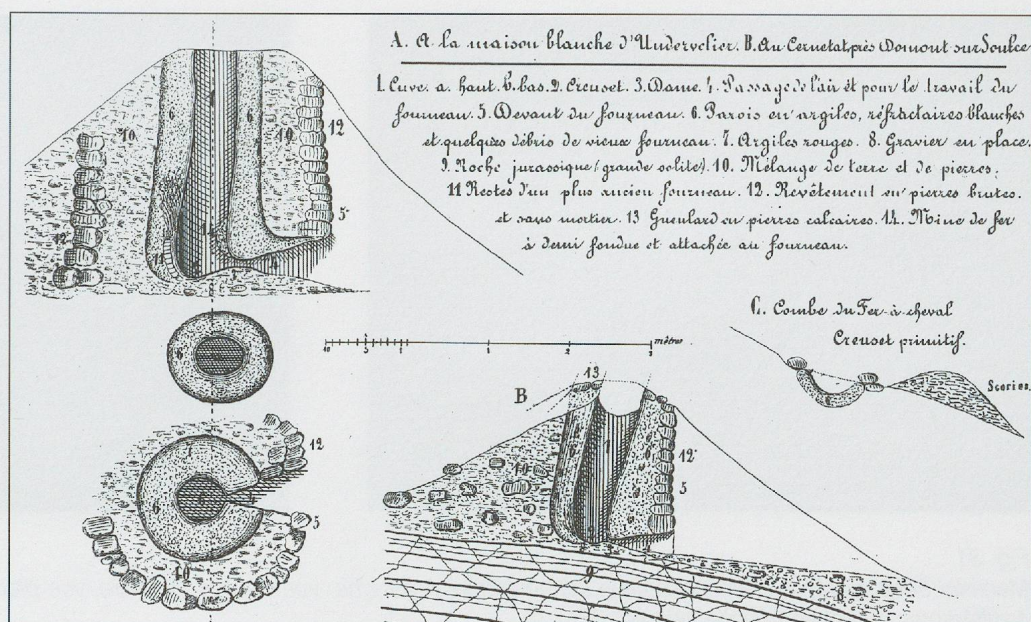 A. A la maison blanche d'Undervelier. B. Au Cernetat, près Domont sur Soulce
1. Cuve. a. haut. b. bas. 2. Creuset. 3. Dame. 4. Passage de l'air et pour le travail du
fourneau. 5. Devant du fourneau. 6. Parois en argiles, réfractaires blanches
et quelques débris de vieux fourneau. 7. Argiles rouges. 8. Gravier en place.
9. Roche jurassique (grande oolite). 10. Mélange de terre et de pierres.
11 Restes d'un plus ancien fourneau. 12. Revêtement en pierres brutes.
et sans mortier. 13 Gueulard en pierres calcaires. 14. Mine de fer
à demi fondue et attachée au fourneau.
6 6
10 10 12
12 5
11
4
C. Combe du Fer-à-cheval
Creuset primitif.
Scories.
6
10 5 1 2 3 mètres
6
B 13
1
10 12
5
9
8
12
6
5
10